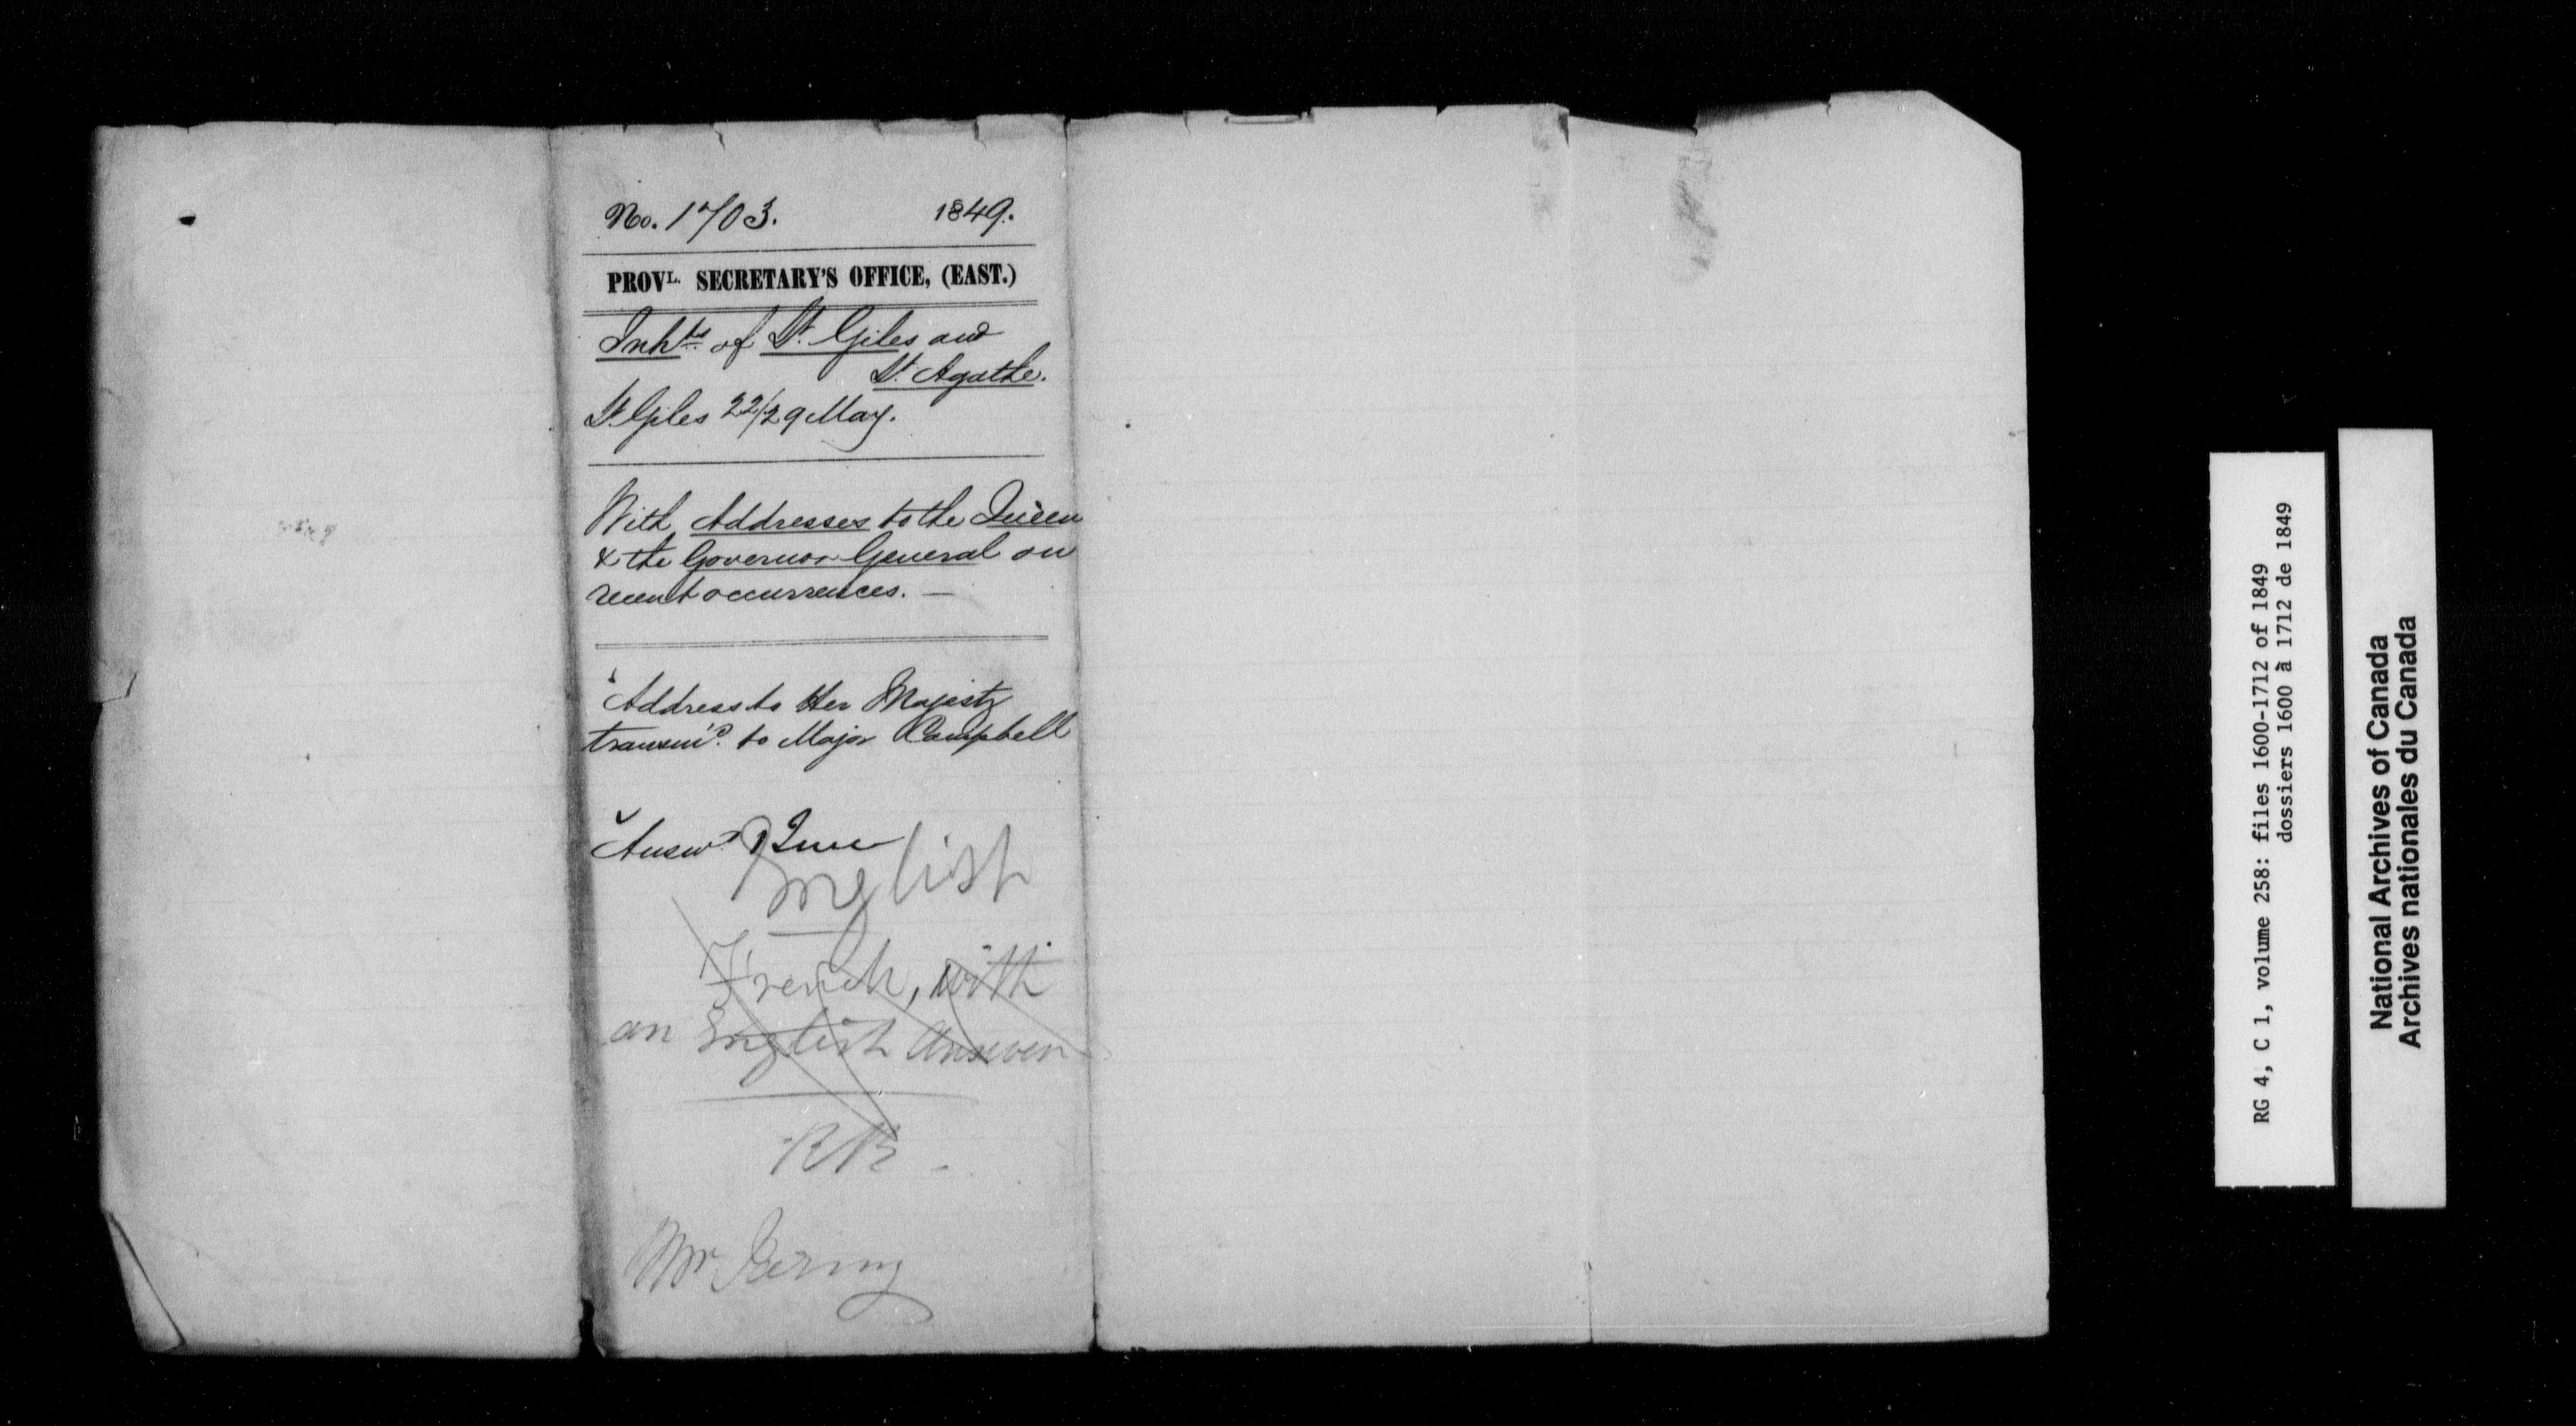 No. 1703. 1849.
PROVL. SECRETARY'S OFFICE, (EAST.)
Inhts. of St. Giles and
St. Agathe.
St Giles 22/29 May.
With Addresses to the Queen
& the Governor General on
recent occurrences. —
Address to Her Majesty
transmd. to Major Campbell
Answd June
English
French, with
an English Answer
Mr
RG 4, C 1, volume 258: files 1600-1712 of 1849
dossiers 1600 à 1712 de 1849
National Archives of Canada
Archives nationales du Canada